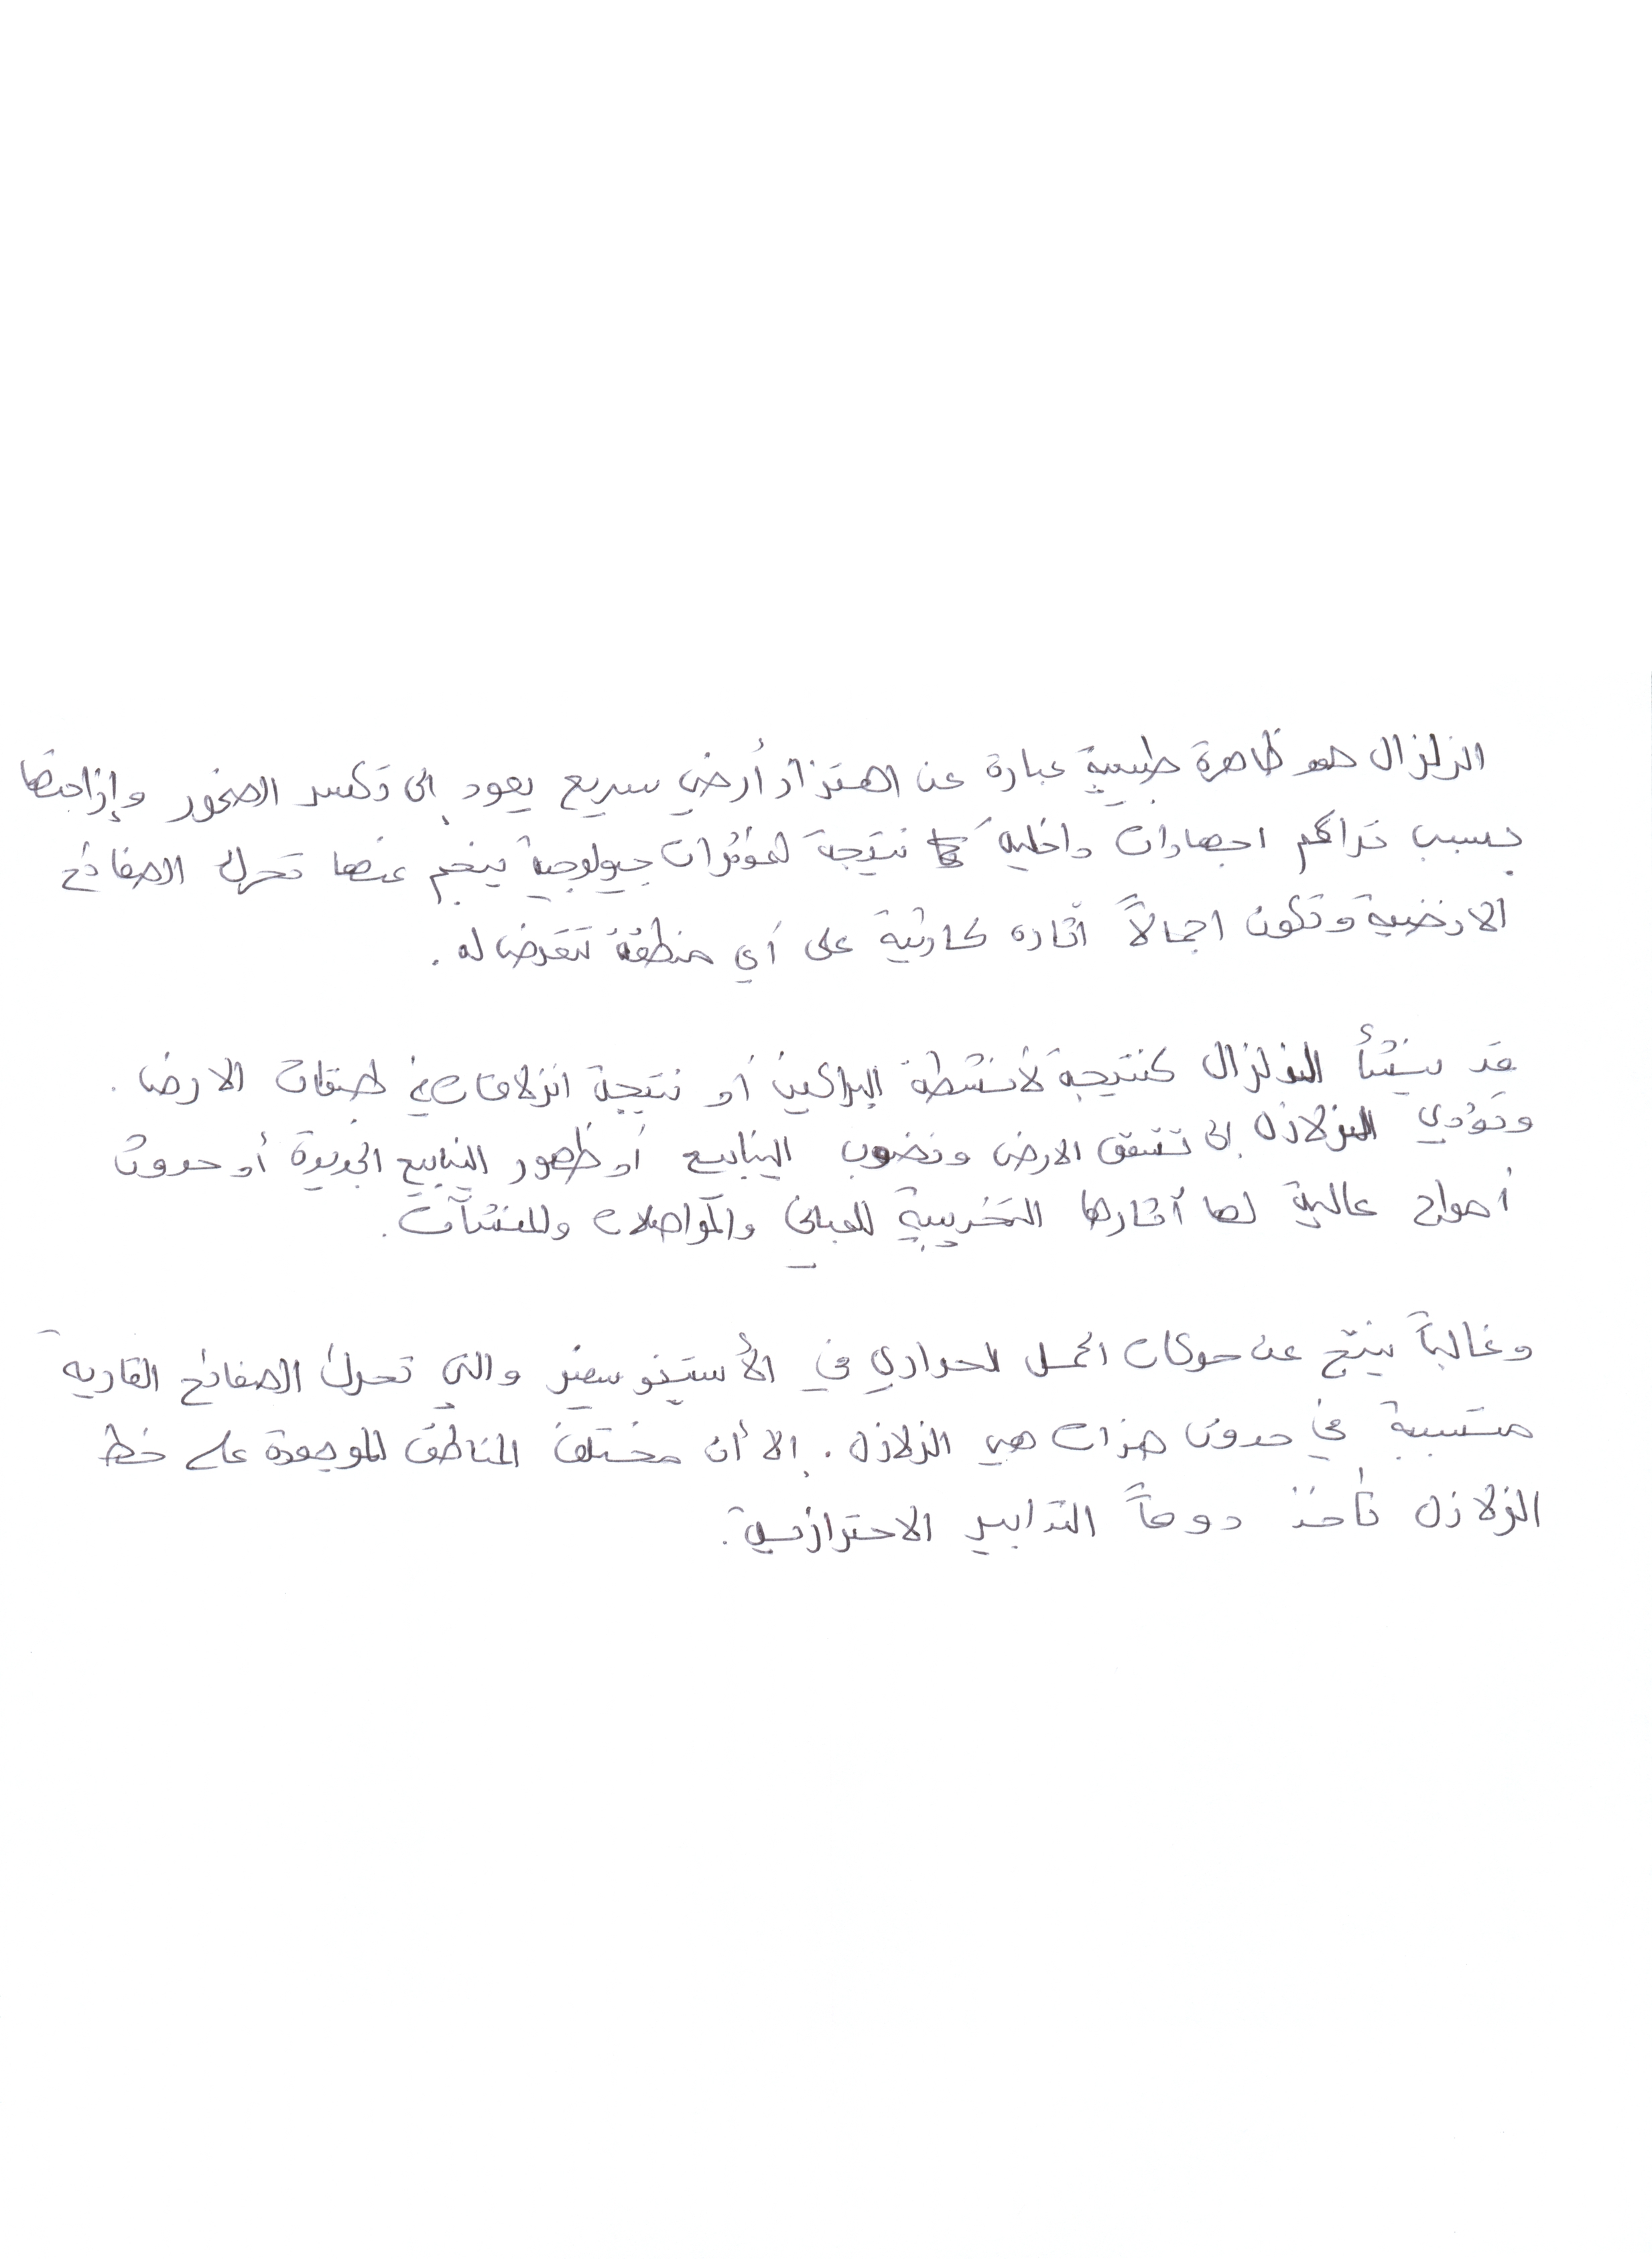 الزلزال هو ظاهرة طبيعية عبارة عن اهتزاز أرضي سريع يعود إلى تكسر الصخور وإزاحتها
بسبب تراكم اجهادات داخلية نتيجة لمؤثرات جيولوجية ينجم عنها تحرك الصفائح
الارضية وتكون اجمالاً آثاره كارثية على أي منطقة تتعرض له.
قد ينشأ الزلزال كنتيجة لأنشطة البراكين أو نتيجة انزلاقات في طبقات الارض.
وتؤدي الزلازل إلى تشقق الارض ونضوب الينابيع أو ظهور الينابيع الجديدة أو حدوث
أمواج عالية لها آثارها التخريبية للمباني والمواصلات وللمنشآت.
وغالباً ينتج عن حركات الحمل الحراري في الأستينوسفير والتي تحرك الصفائح القارية
متسببة في حدوث هزات هي الزلازل. إلا أن مختلف المناطق الموجودة على خط
الزلازل تأخذ دوماً التدابير الاحترازية.